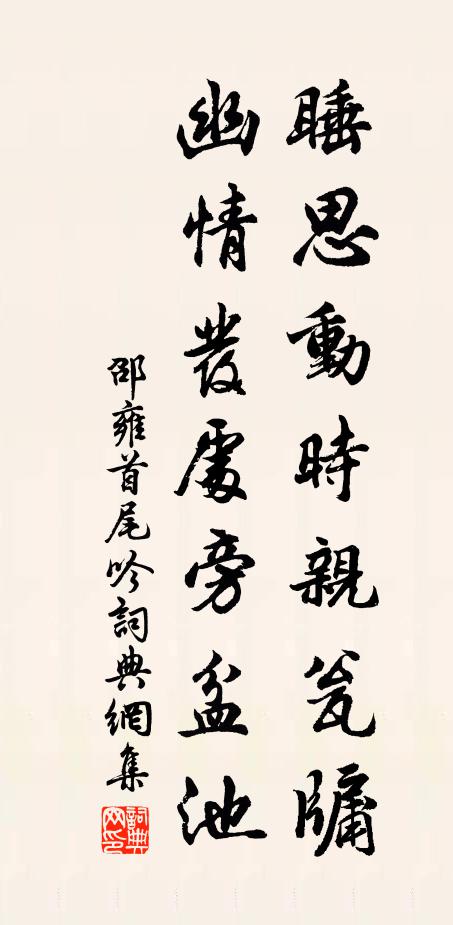 睡思動時親瓮牖
幽情發處旁盆池
邵雍首尾吟詞典網集
詞典網印